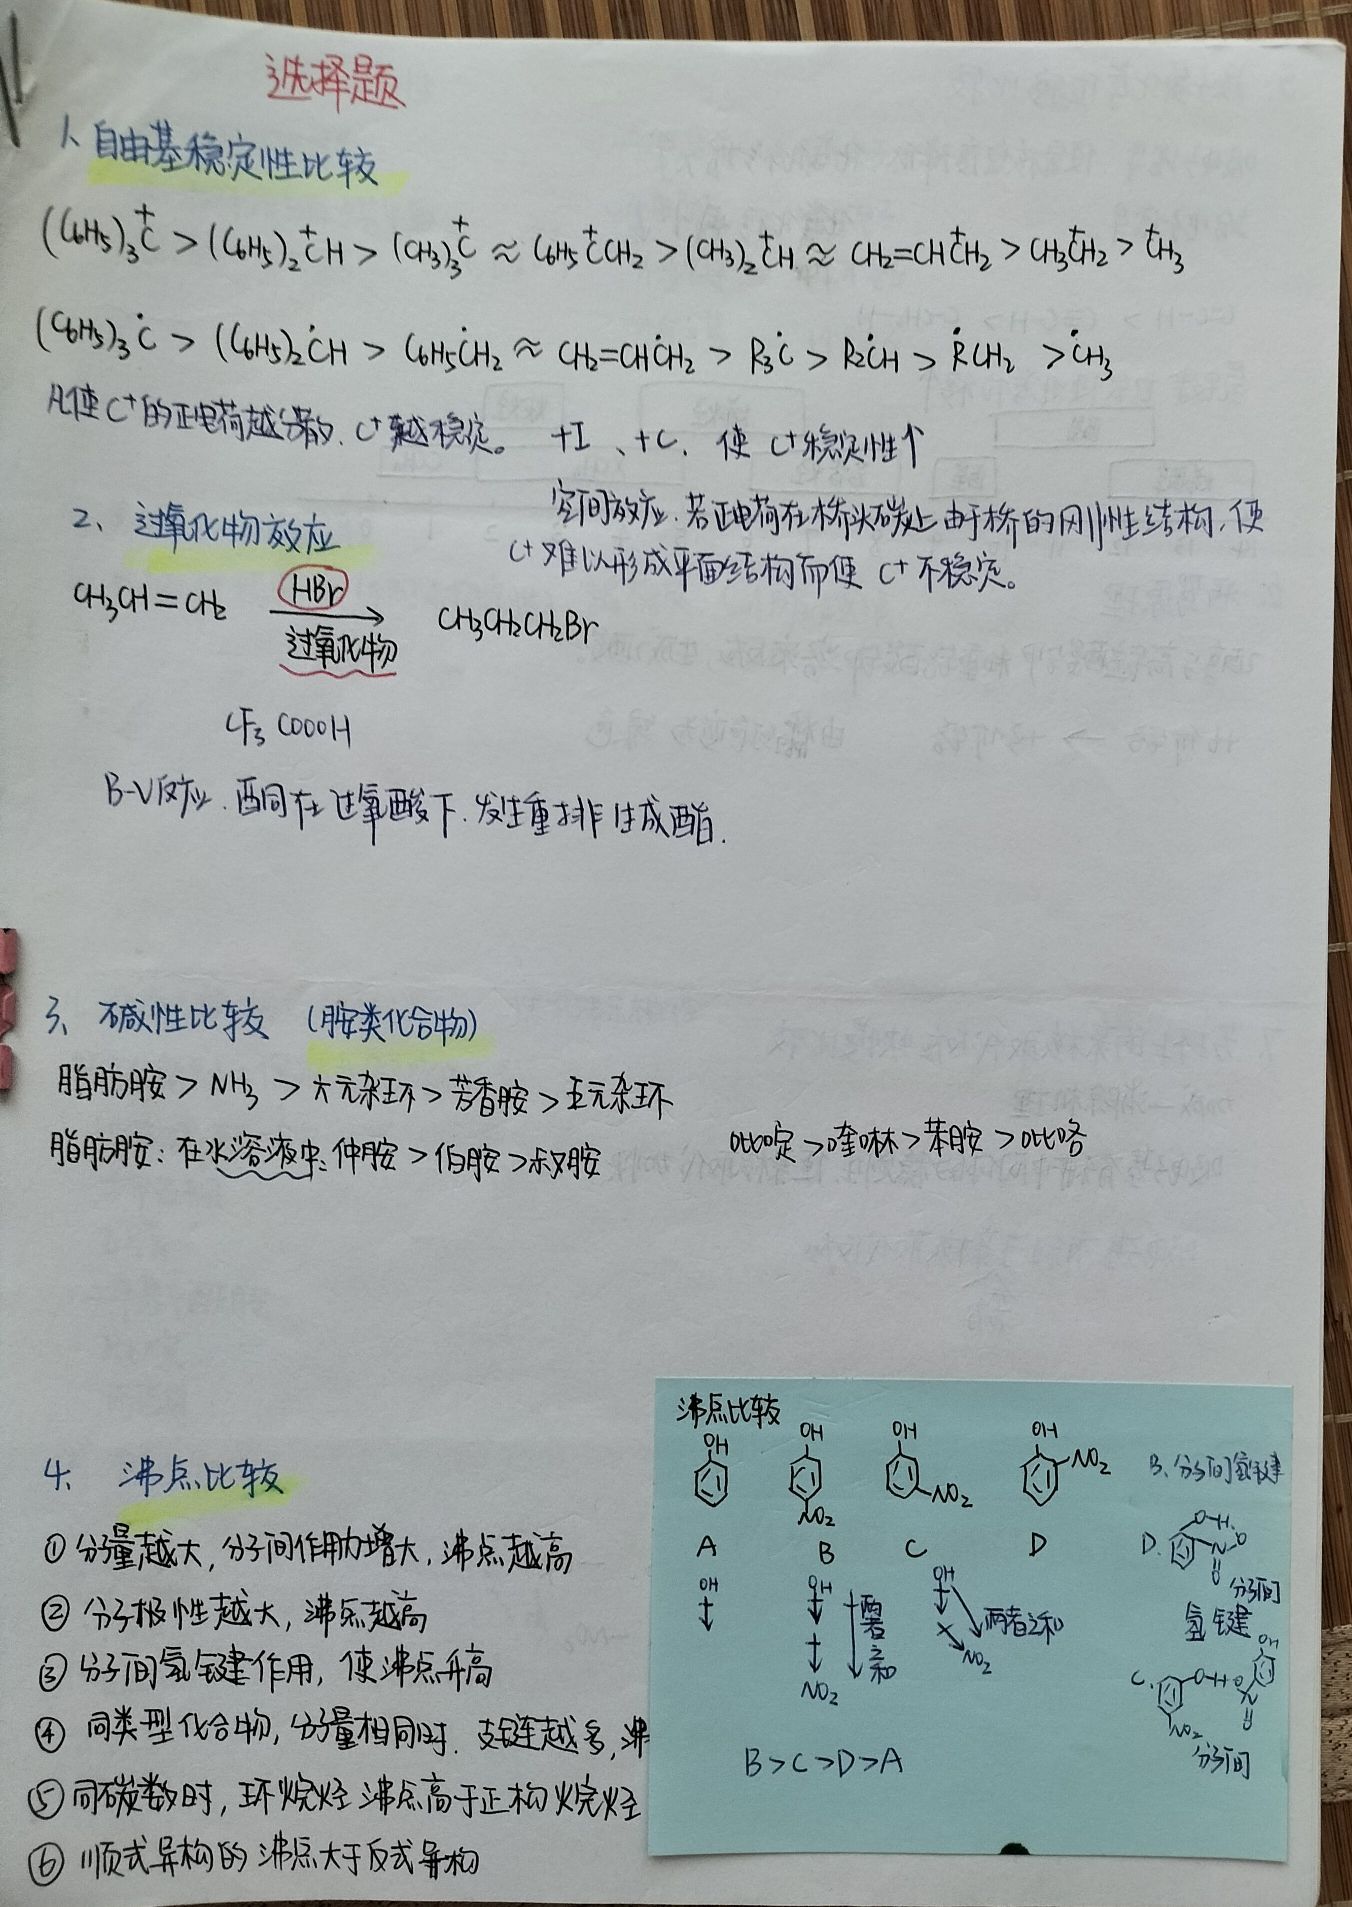 选择题
1、自由基稳定性比较
(C6H5)3C+ > (C6H5)2C+H > (CH3)3C+ ≈ C6H5C+CH2 > (CH3)2C+H ≈ CH2=CHC+H2 > CH3C+H2 > C+H3
(C6H5)3Ċ > (C6H5)2ĊH > C6H5ĊH2 ≈ CH2=CHĊH2 > R3Ċ > R2ĊH > ṘCH2 > ĊH3
凡使C+的正电荷越分散、C+越稳定。 +I、+C、使 C+稳定性↑
空间效应、若正电荷在桥头碳上由于桥的刚性结构,使
C+难以形成平面结构而使 C+不稳定。
2、过氧化物效应
CH3CH=CH2 HBr → 过氧化物 CH3CH2CH2Br
CF3COOOH
B-V反应、酮在过氧酸下、发生重排生成酯.
3、碱性比较 (胺类化合物)
脂肪胺 > NH3 > 六元杂环 > 芳香胺 > 五元杂环
脂肪胺:在水溶液中:仲胺 > 伯胺 > 叔胺
吡啶 > 喹啉 > 苯胺 > 吡咯
4、沸点比较
①分子量越大,分子间作用力增大,沸点越高
②分子极性越大,沸点越高
③分子间氢键作用,使沸点升高
④同类型化合物,分子量相同时、支链越多,沸
⑤同碳数时,环烷烃沸点高于正构烷烃
⑥顺式异构的沸点大于反式异构
沸点比较
OH OH OH OH
NO2 NO2 NO2
A B C D
OH OH OH
NO2 NO2
两者之和 两者之和
B > C > D > A
B、分子间氢键
D. O-H O N O
分子间
氢键
C. O-H O N O OH
NO2
分子间